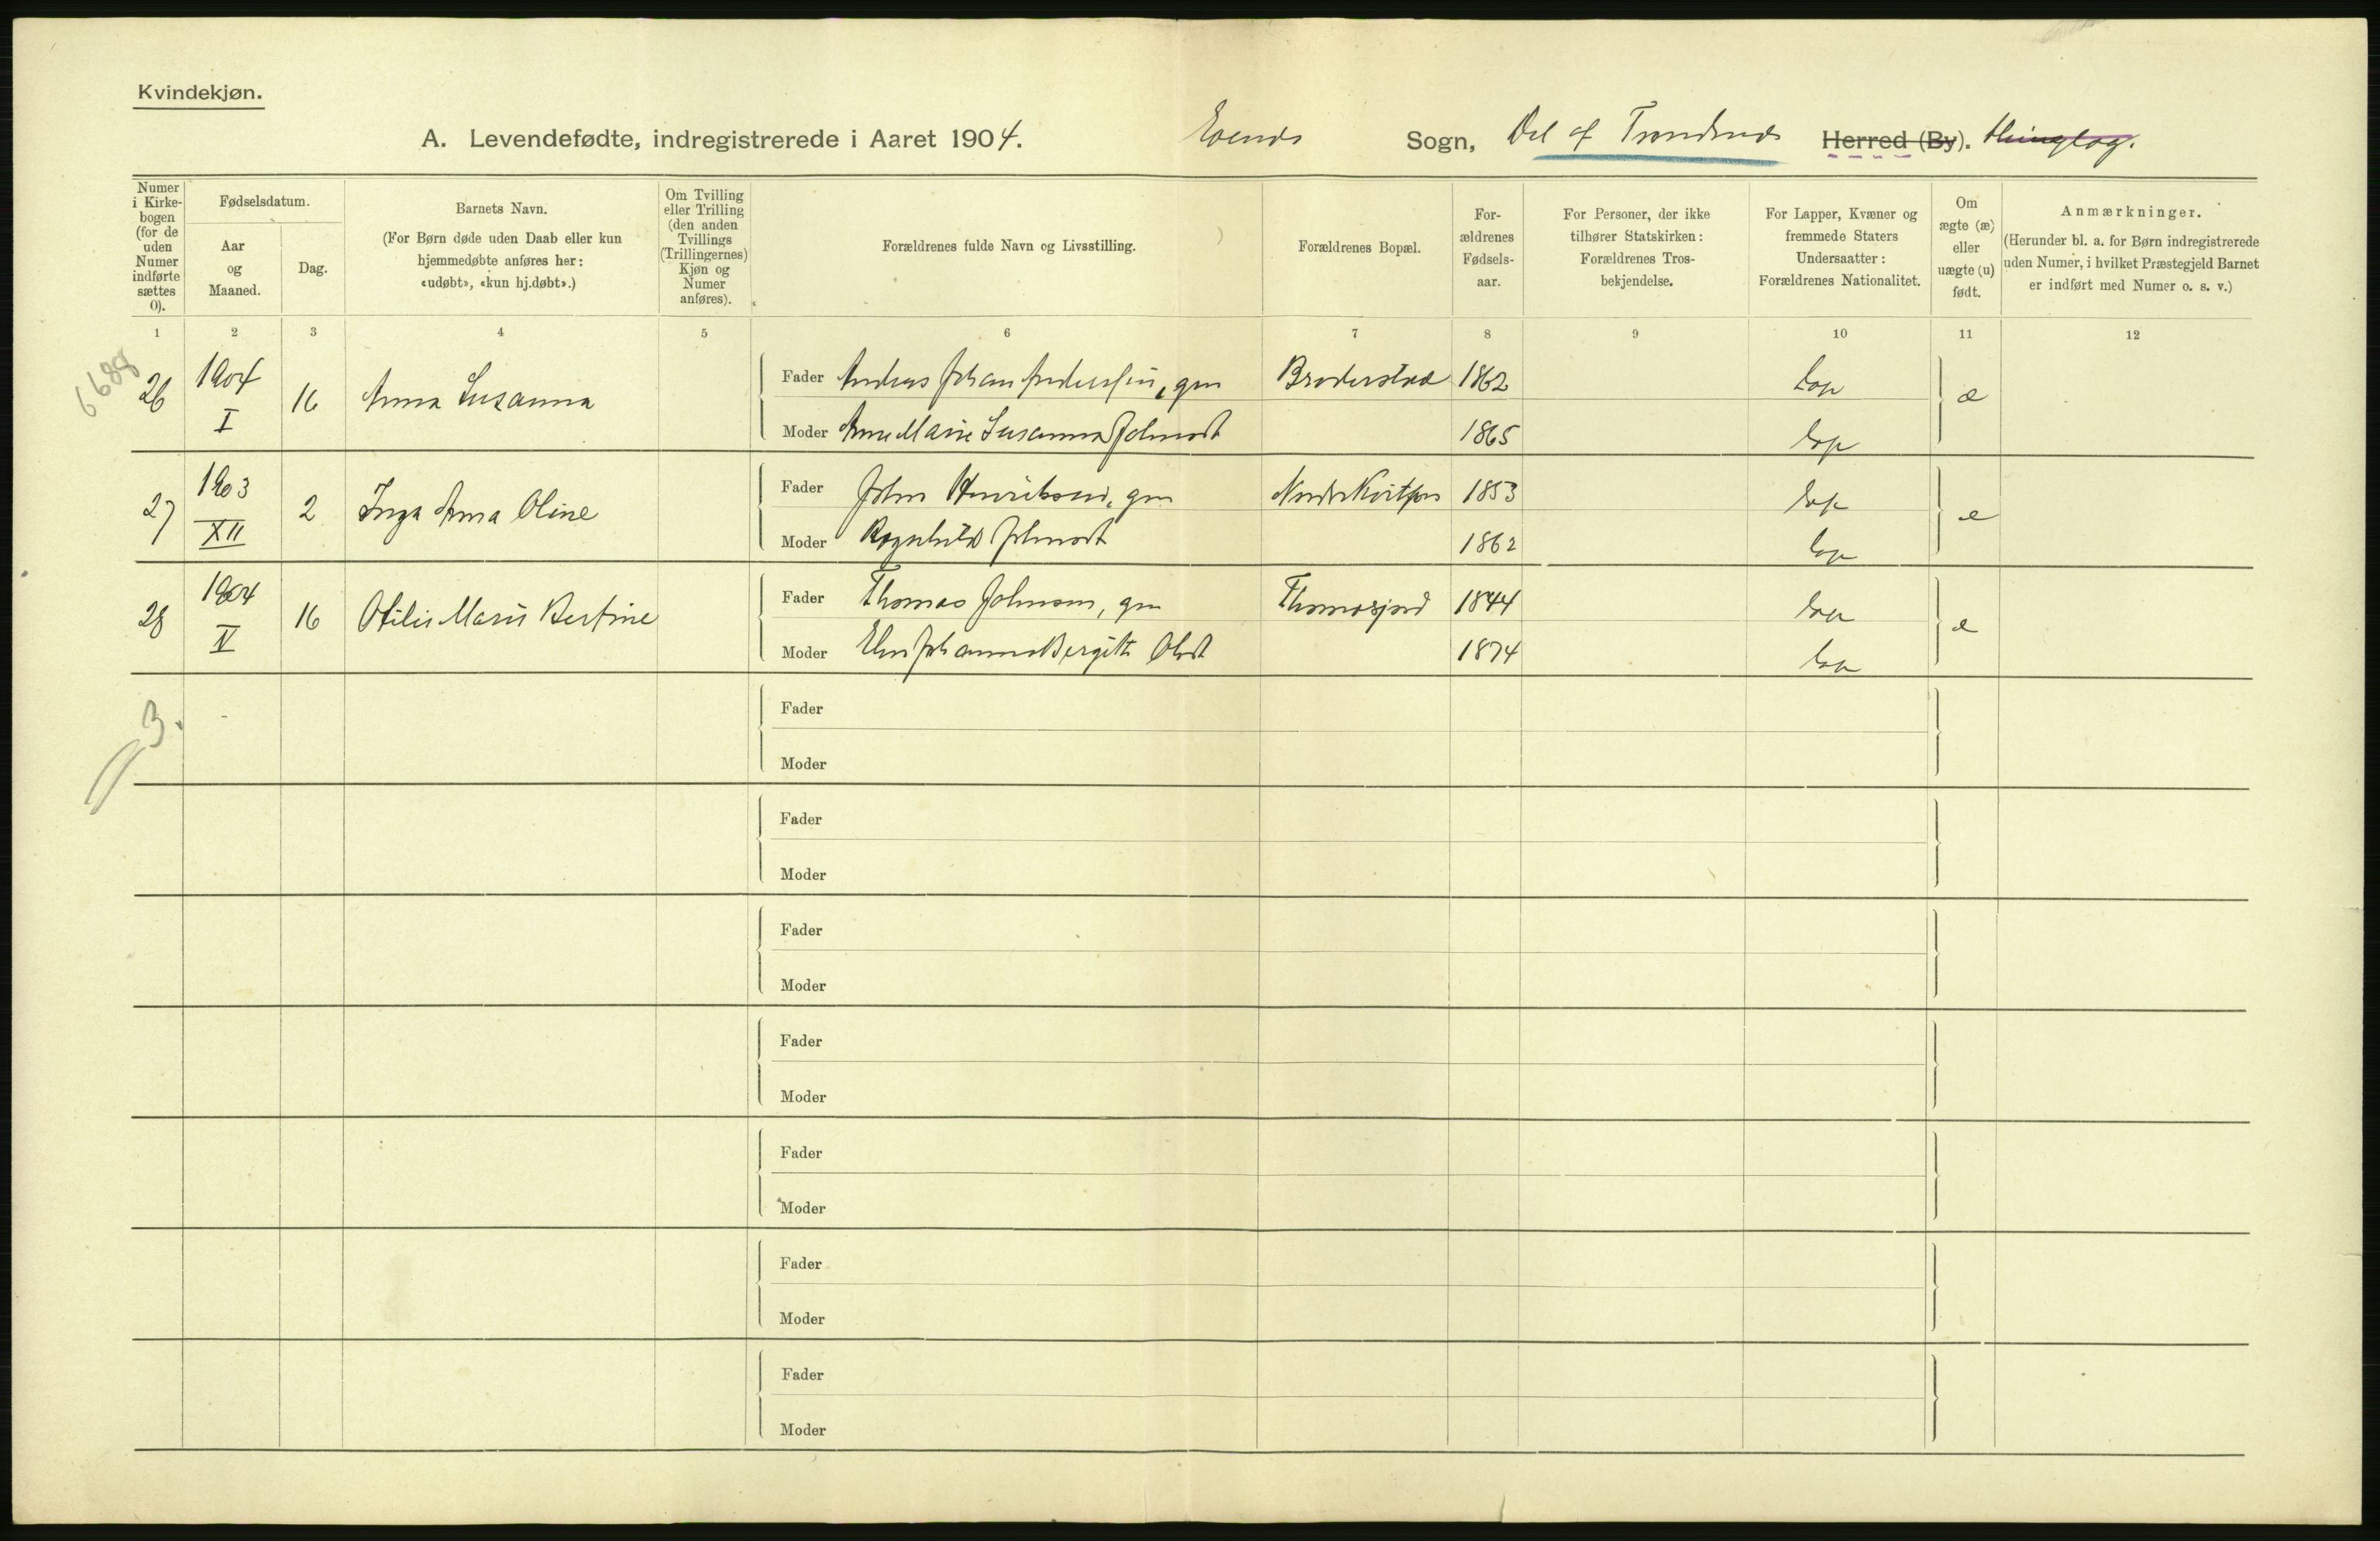 Kvindekjøn.
A. Levendefødte, indregistrerede i Aaret 1904. Evenes Sogn, Del af Trondenes Herred (By). thinglag.
Numer i Kirkebogen (for de uden Numer indførte sættes 0).
Fødselsdatum.
Aar og Maaned.
Dag.
Barnets Navn.
(For Børn døde uden Daab eller kun hjemmedøbte anføres her: «udøbt», «kun hj.døbt».)
Om Tvilling eller Trilling (den anden Tvillings (Trillingernes) Kjøn og Numer anføres).
Forældrenes fulde Navn og Livsstilling.
Forældrenes Bopæl.
Forældrenes Fødselsaar.
For Personer, der ikke tilhører Statskirken: Forældrenes Trosbekjendelse.
For Lapper, Kvæner og fremmede Staters Undersaatter: Forældrenes Nationalitet.
Om ægte (æ) eller uægte (u) født.
Anmærkninger.
(Herunder bl. a. for Børn indregistrerede uden Numer, i hvilket Præstegjeld Barnet er indført med Numer o. s. v.)
1 2 3 4 5 6 7 8 9 10 11 12
6688
26 1904 I 16 Anna Susanna
Fader Andreas Johan Anderssen, gm Broderstad 1862 Lap æ
Moder Anne Marie Susanna Johnsdt 1865 Lap
27 1903 XII 2 Inga Anna Oline
Fader John Henriksen, gm 1853 Lap æ
Moder Ragnhild Johnsdt 1862 Lap
28 1904 16 Otilie Marie Bertine
Fader Thomas Johnsen, gm Thomasjord 1844 Lap æ
Moder Johanna Bergitte Olsdt 1874 Lap
3.
Fader
Moder
Fader
Moder
Fader
Moder
Fader
Moder
Fader
Moder
Fader
Moder
Fader
Moder